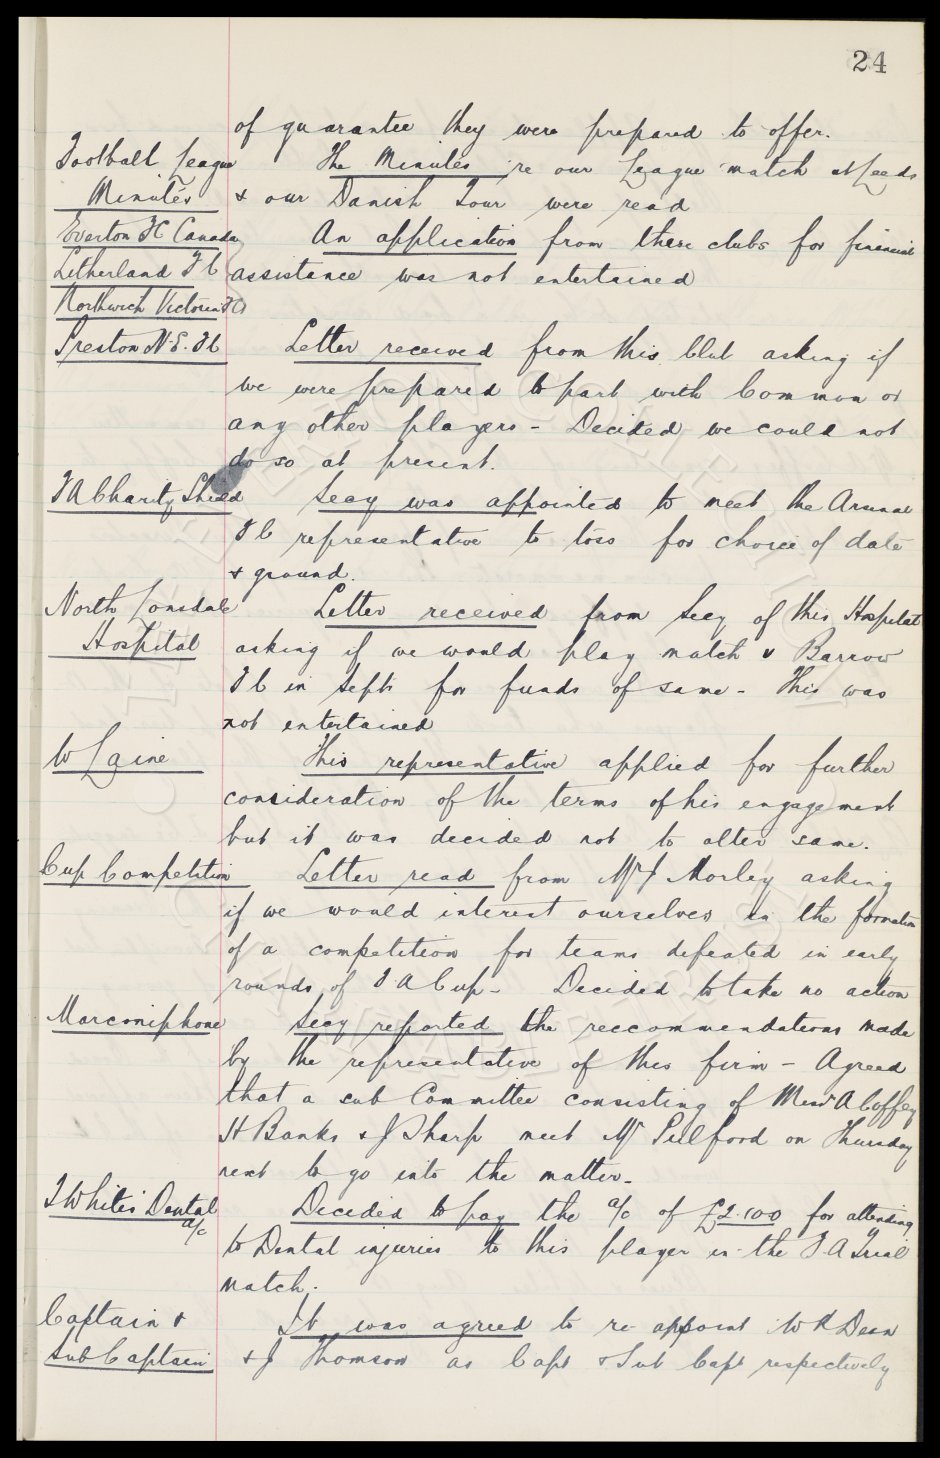 24
of guarantee they were prepared to offer.
Football League The Minutes re our League match at Leeds
Minutes & our Danish Tour were read
Everton FC Canada An application from there clubs for financial
Litherland F C assistance was not entertained
Northwich Victoria FC
Preston N.E. F C Letter received from this Club asking if
we were prepared to part with Common or
any other players - Decided we could not
do so at present.
F A Charity Shield Secy was appointed to meet the Arsenal
F C representative to toss for choice of date
& ground.
North Lonsdale Letter received from Secy of this Hospital
Hospital asking if we would play match v Barrow
F C in Septr for funds of same - This was
not entertained
W Laine This representative applied for further
consideration of the terms of his engagement
but it was decided not to alter same.
Cup Competition Letter read from Mr J Morley asking
if we would interest ourselves in the formation
of a competition for teams defeated in early
rounds of F.A Cup - Decided to take no action
Marconiphone Secy reported the reccommendations made
by the representative of this firm - Agreed
that a sub Committee consisting of Messrs A Coffey
H Banks & J Sharp meet Mr Pulford on Thursday
next to go into the matter.
T White's Dental Decided to pay the a/c of £2.10.0 for attending
a/c to Dental injuries to this player in the F.A Trial
match.
Captain & It was agreed to re-appoint W R Dean
Sub Captain & J Thomson as Capt & Sub Capt respectively